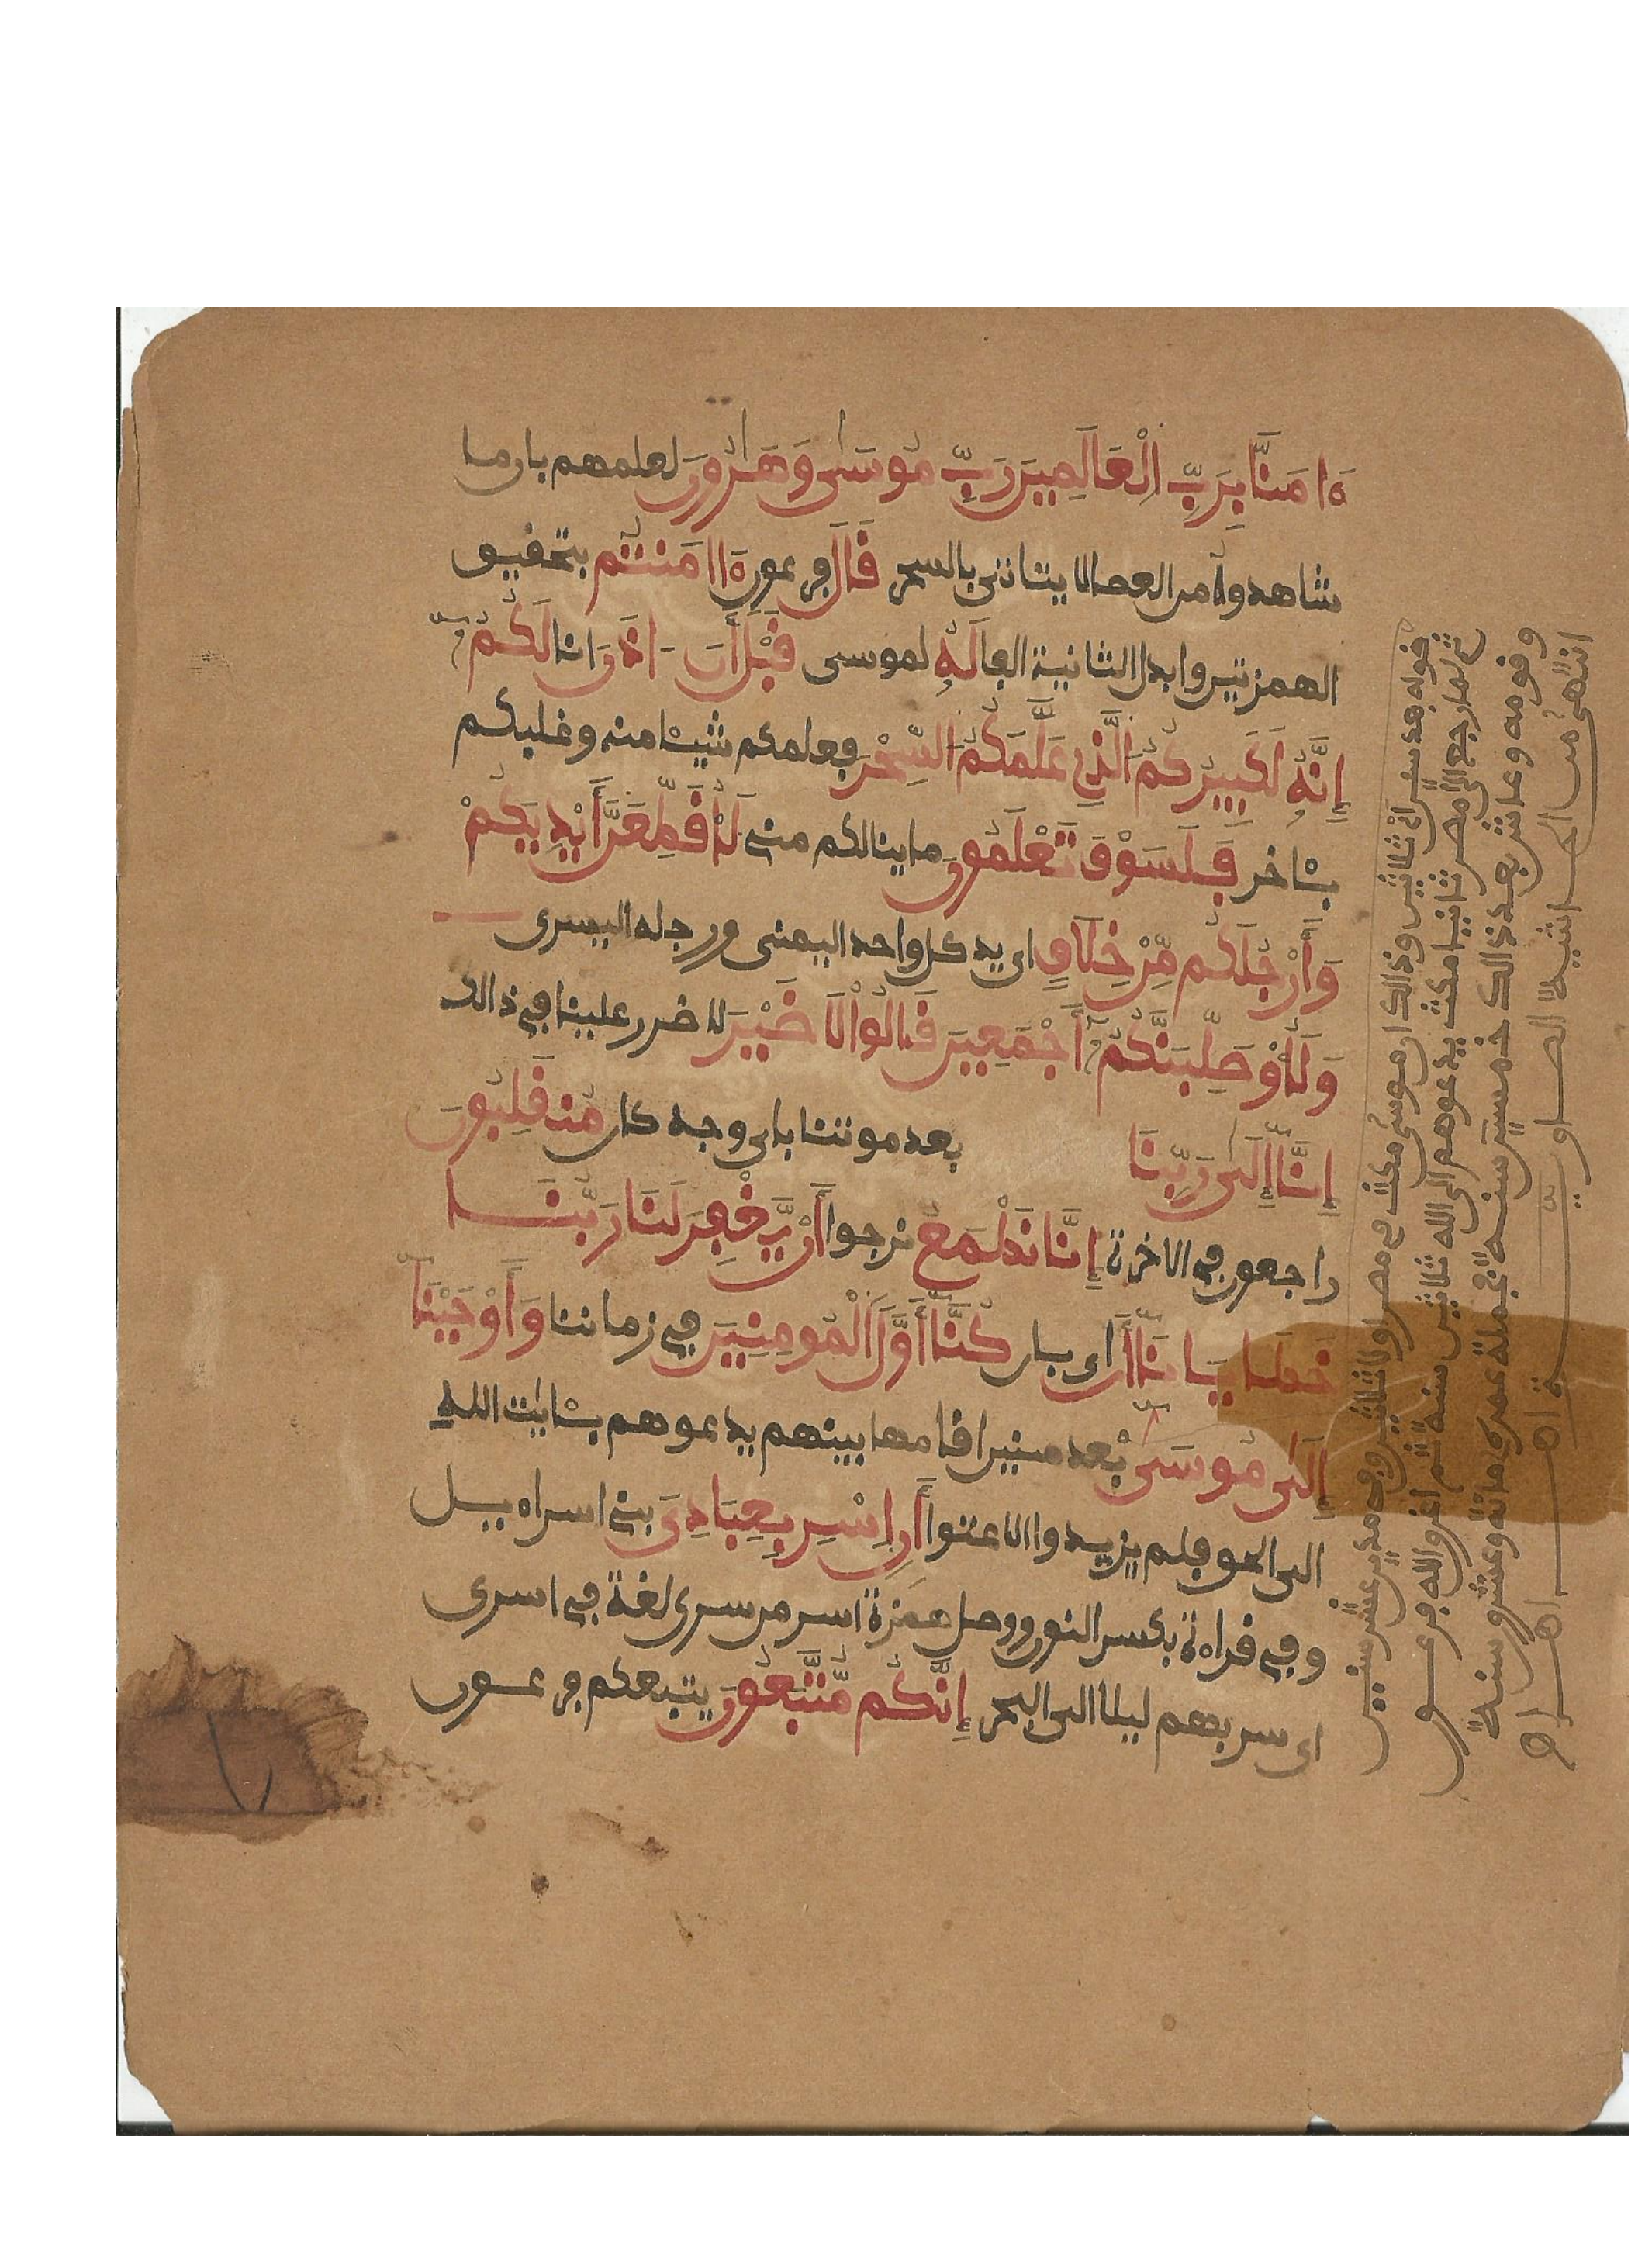 ءامَنَّا بِرَبِّ الْعَالَمِينَ رَبِّ مُوسَىٰ وَهَٰرُونَ لعلمهم بان ما
شاهدوه من العصا لا يتاتى بالسحر قَالَ فرعون ءاامَنتُم بتحقيق
الهمزتين وابدال الثانية الفا لَهُ لموسى قَبْلَ أَنَ اذَنَ انا لَكُمُ
إِنَّهُ لَكَبِيرُكُمُ الَّذِي عَلَّمَكُمُ السِّحْرَ فعلمكم شيئا منه وغلبكم
بئاخر فَلَسَوْفَ تَعْلَمُونَ ما ينالكم منى لَأُقَطِّعَنَّ أَيْدِيَكُمْ
وَأَرْجُلَكُم مِّنْ خِلَافٍ اى يد كل واحد اليمنى ورجله اليسرى
وَلَأُوصَلِّبَنَّكُمُ أَجْمَعِينَ قَالُوا لَا ضَيْرَ لا ضرر علينا في ذالك
إِنَّا إِلَىٰ رَبِّنَا بعد موتنا باى وجه كان مُنقَلِبُونَ
راجعون في الاخرة إِنَّا نَطْمَعُ نرجوا أَنْ يَّغْفِرَ لَنَا رَبُّنَا
خطايانا أَن اى بان كُنَّا أَوَّلَ الْمُومِنِينَ في زماننا وَأَوْحَيْنَا
إِلَىٰ مُوسَىٰ بعد سنين اقامها بينهم يدعوهم بئايٰت الله
الى الحق فلم يزيدوا الا عتوا أَنِ اسْرِ بِعِبَادِيَ بنى اسراءيل
وفي قراءة بكسر النون ووصل همزة اسر من سرى لغة في اسرى
اى سر بهم ليلا الى البحر إِنَّكُم مُّتَّبَعُونَ يتبعكم فرعون
قوله بعد سنين اى ثلاثين وذالك ان موسى مكث في مصر اولا ثلاثين وفي مدين عشر سنين
ثم لما رجع الى مصر ثانيا مكث يدعوهم الى الله ثلاثين سنة ثم اغرق الله فرعون
وقومه وعاش بعد ذالك خمسين سنة فجملة عمره مائة وعشرون سنة
انتهى من الحاشية الصاوية اهـ اهـ اهـ